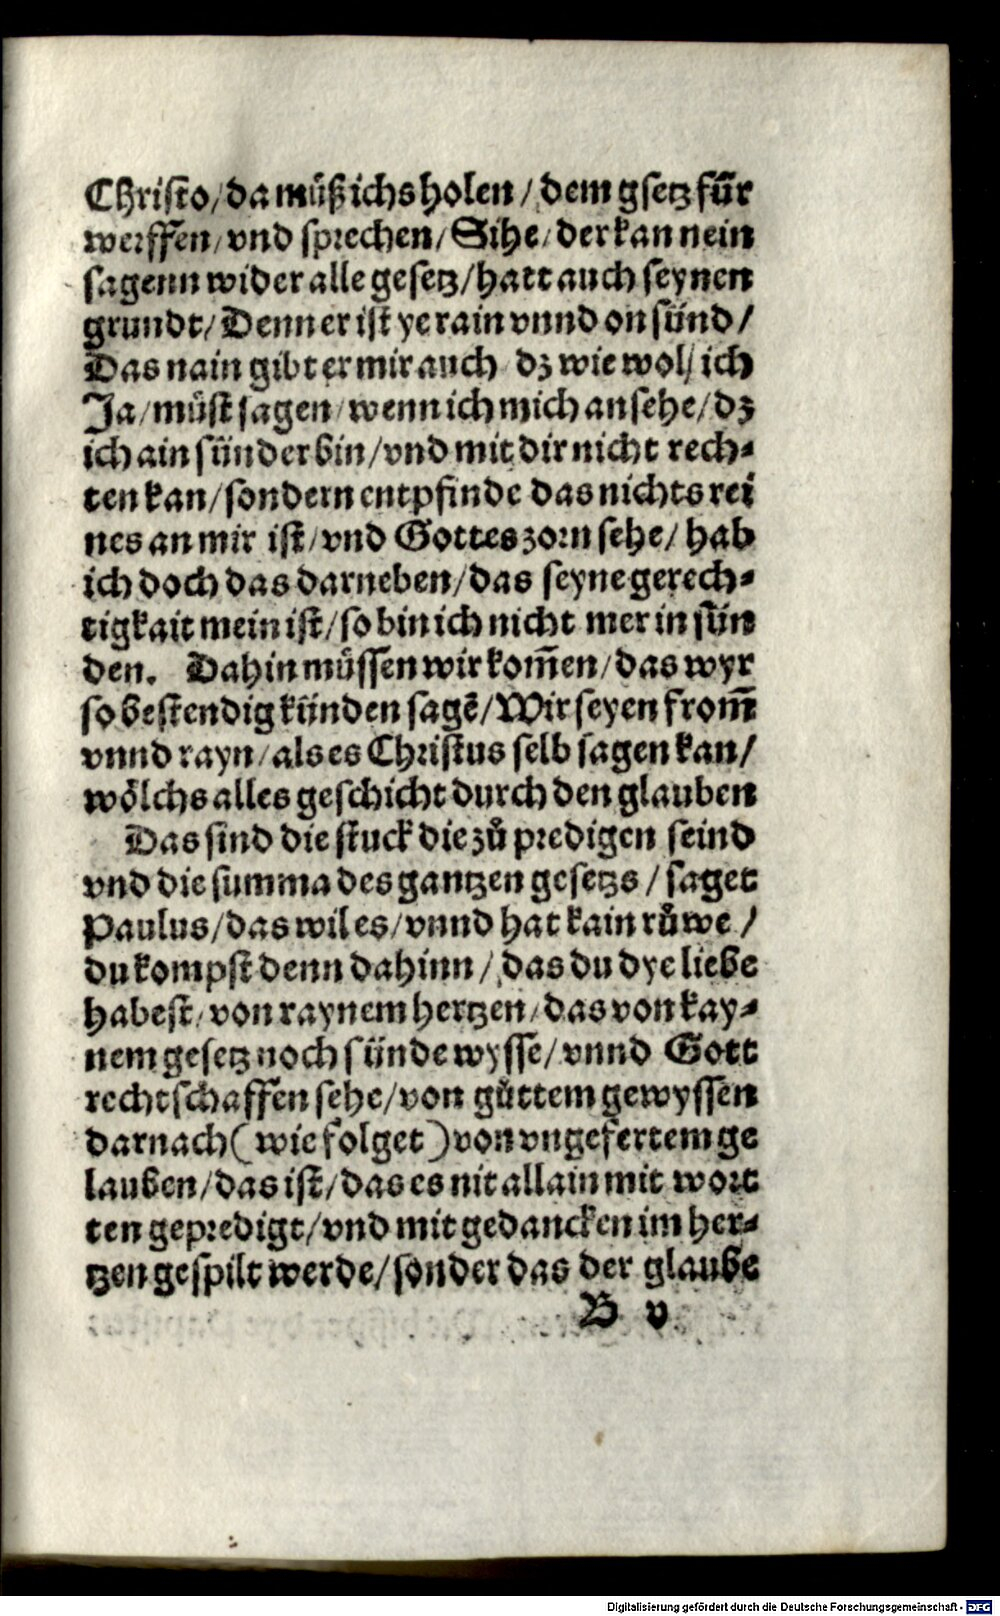 Christo/da müß ichs holen/dem gsetz für
werffen/vnd sprechen/Sihe/der kan nein
sagenn wider alle gesetz/hatt auch seynen
grundt/Denn er ist ye rain vnnd on sünd/
Das nain gibt er mir auch dz wie wol/ich
Ja/müst sagen/wenn ich mich ansehe/dz
ich ain sünder bin/vnd mit dir nicht rech⸗
ten kan/sondern entpfinde das nichts rei
nes an mir ist/vnd Gottes zorn sehe/hab
ich doch das darneben/das seyne gerech⸗
tigkait mein ist/so bin ich nicht mer in sün
den. Dahin müssen wir kom̄en/das wyr
so bestendig künden sagē/Wir seyen from̄
vnnd rayn/als es Christus selb sagen kan/
wölchs alles geschicht durch den glauben
Das sind die stuck die zů predigen seind
vnd die summa des gantzen gesetzs/saget
Paulus/das wil es/vnnd hat kain růwe/
du kompst denn dahinn/das du dye liebe
habest/von raynem hertzen/das von kay⸗
nem gesetz noch sünde wysse/vnnd Gott
rechtschaffen sehe/von gůttem gewyssen
darnach (wie folget) von vngefertem ge
lauben/das ist/das es nit allain mit wort
ten gepredigt/vnd mit gedancken im her⸗
tzen gespilt werde/sonder das der glaube
B v
Digitalisierung gefördert durch die Deutsche Forschungsgemeinschaft - DFG